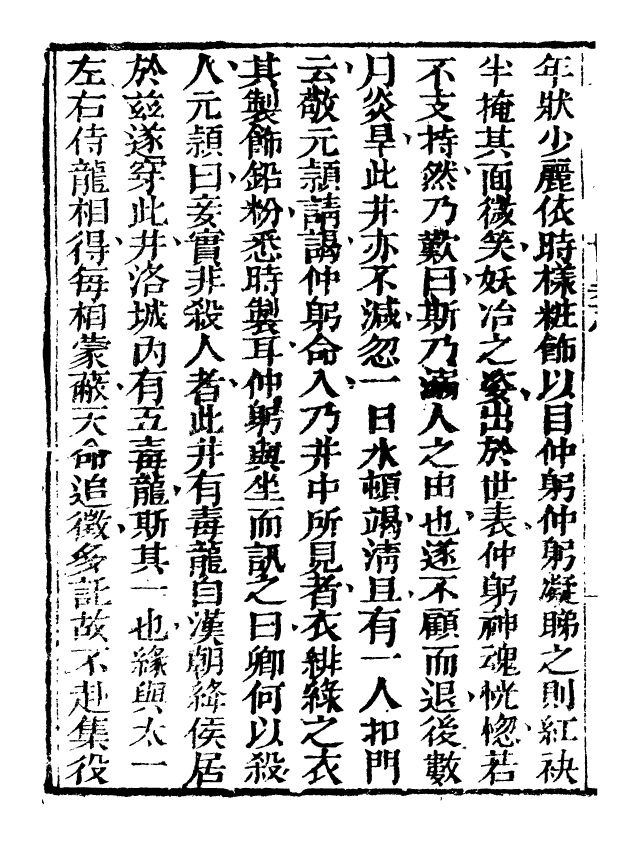 年狀少麗依時樣粧飾以目仲躬仲躬凝睇之則紅袂
半掩其面微笑妖冶之姿出於世表仲躬神魂恍惚若
不支持然乃歎曰斯乃溺人之由也遂不顧而退後數
月炎旱此井亦不減忽一日水頓竭淸旦有一人扣門
云敬元頴請謁仲躬命入乃井中所見者衣緋綠之衣
其製飾鉛粉悉時製耳仲躬與坐而訊之曰卿何以殺
人元頴曰妾實非殺人者此井有毒龍自漢朝絳侯居
於茲遂穿此井洛城內有五毒龍斯其一也緣與太一
左右侍龍相得每相蒙蔽天命追徵多託故不赴集役